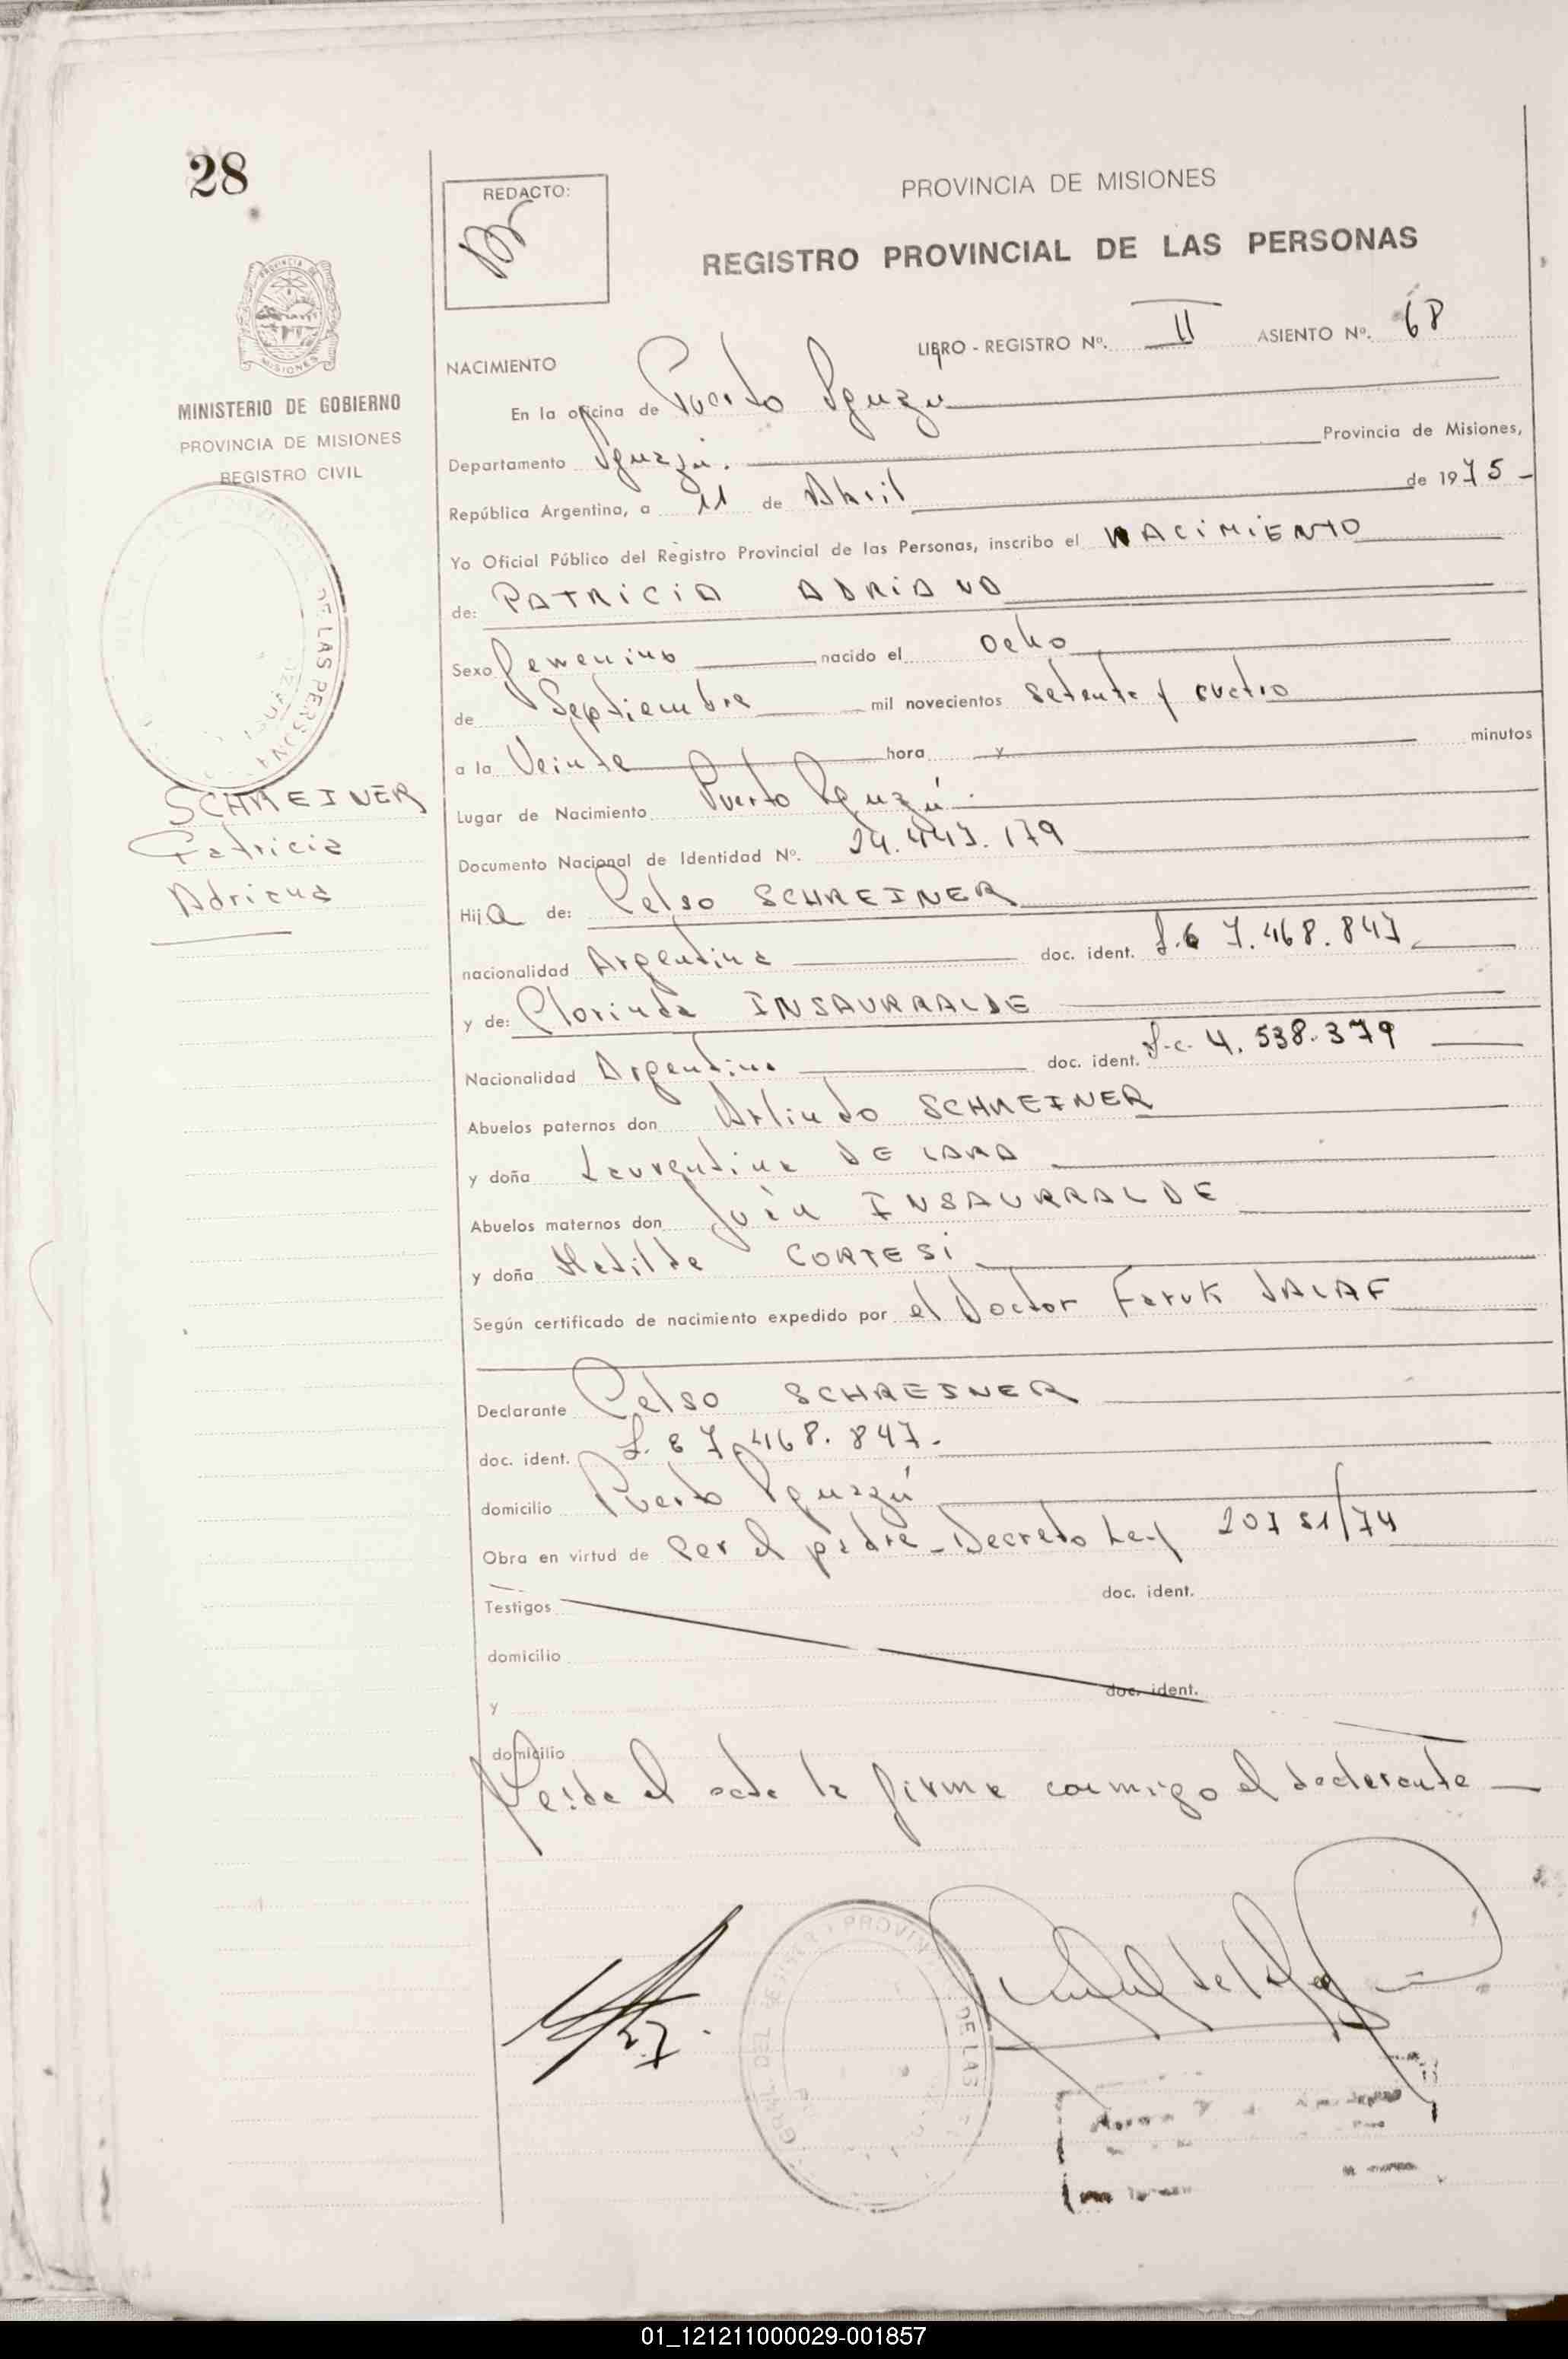 28
REDACTO:
PROVINCIA DE MISIONES
REGISTRO PROVINCIAL DE LAS PERSONAS
LIBRO - REGISTRO Nº. II ASIENTO Nº. 68
NACIMIENTO
MINISTERIO DE GOBIERNO
PROVINCIA DE MISIONES
REGISTRO CIVIL
SCHREINER
Patricia
Adriana
En la oficina de Puerto Iguazu
Departamento Iguazú. Provincia de Misiones,
República Argentina, a 11 de Abril de 1975 -
Yo Oficial Público del Registro Provincial de las Personas, inscribo el NACIMIENTO
de: PATRICIA ADRIANA
Sexo femenino nacido el ocho
de Septiembre mil novecientos setenta y cuatro
a la Veinte hora y minutos
Lugar de Nacimiento Puerto Iguazú.
Documento Nacional de Identidad Nº. 24.447.179
Hija de: Celso SCHREINER
nacionalidad Argentina doc. ident. L.E 7.468.847
y de: Clorinda INSAURRALDE
Nacionalidad Argentina doc. ident. L.C. 4.538.379
Abuelos paternos don Arlindo SCHREINER
y doña Laurentina DE LARA
Abuelos maternos don Juan INSAURRALDE
y doña Matilde CORTESI
Según certificado de nacimiento expedido por el Doctor Faruk JALAF
Declarante Celso SCHREINER
doc. ident. L.E 7.468.847.
domicilio Puerto Iguazú
Obra en virtud de ser el padre - Decreto Ley 20751/74
Testigos doc. ident.
domicilio
y doc. ident.
domicilio
Leida el acta la firma conmigo el declarante
01_121211000029-001857